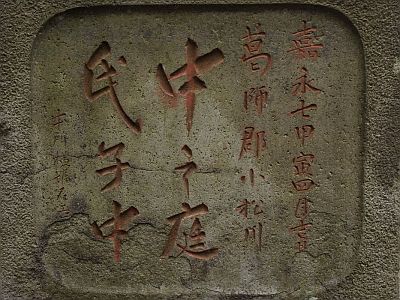 嘉永七甲寅四月吉日
葛師郡小松川
中之庭
氏子中